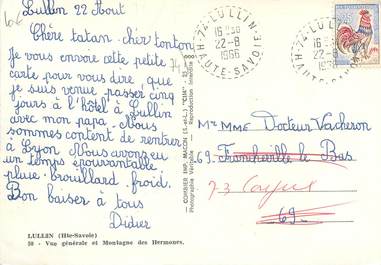 Lullin 22 Août
Chère tatan - cher tonton
Je vous envoie cette petite
carte pour vous dire, que
je suis venue passer cinq
jours à l'hôtel à Lullin
avec mon papa. Nous
sommes content de rentrer
à Lyon. Nous avons eu
un temps épouvantable
pluie - brouillard, froid.
Bon baiser à tous
Didier
LULLIN (Hte-Savoie)
50 - Vue générale et Montagne des Hermones.
COMBIER IMP. MACON (S.-et-L.) "CIM"
Photographie Véritable - Reproduction Interdite
74-LULLIN
16H30
22-8
1966
HAUTE-SAVOIE
74-LULLIN
22-8
Mr Mme Docteur Vacheron
69. Francheville le Bas
73
69